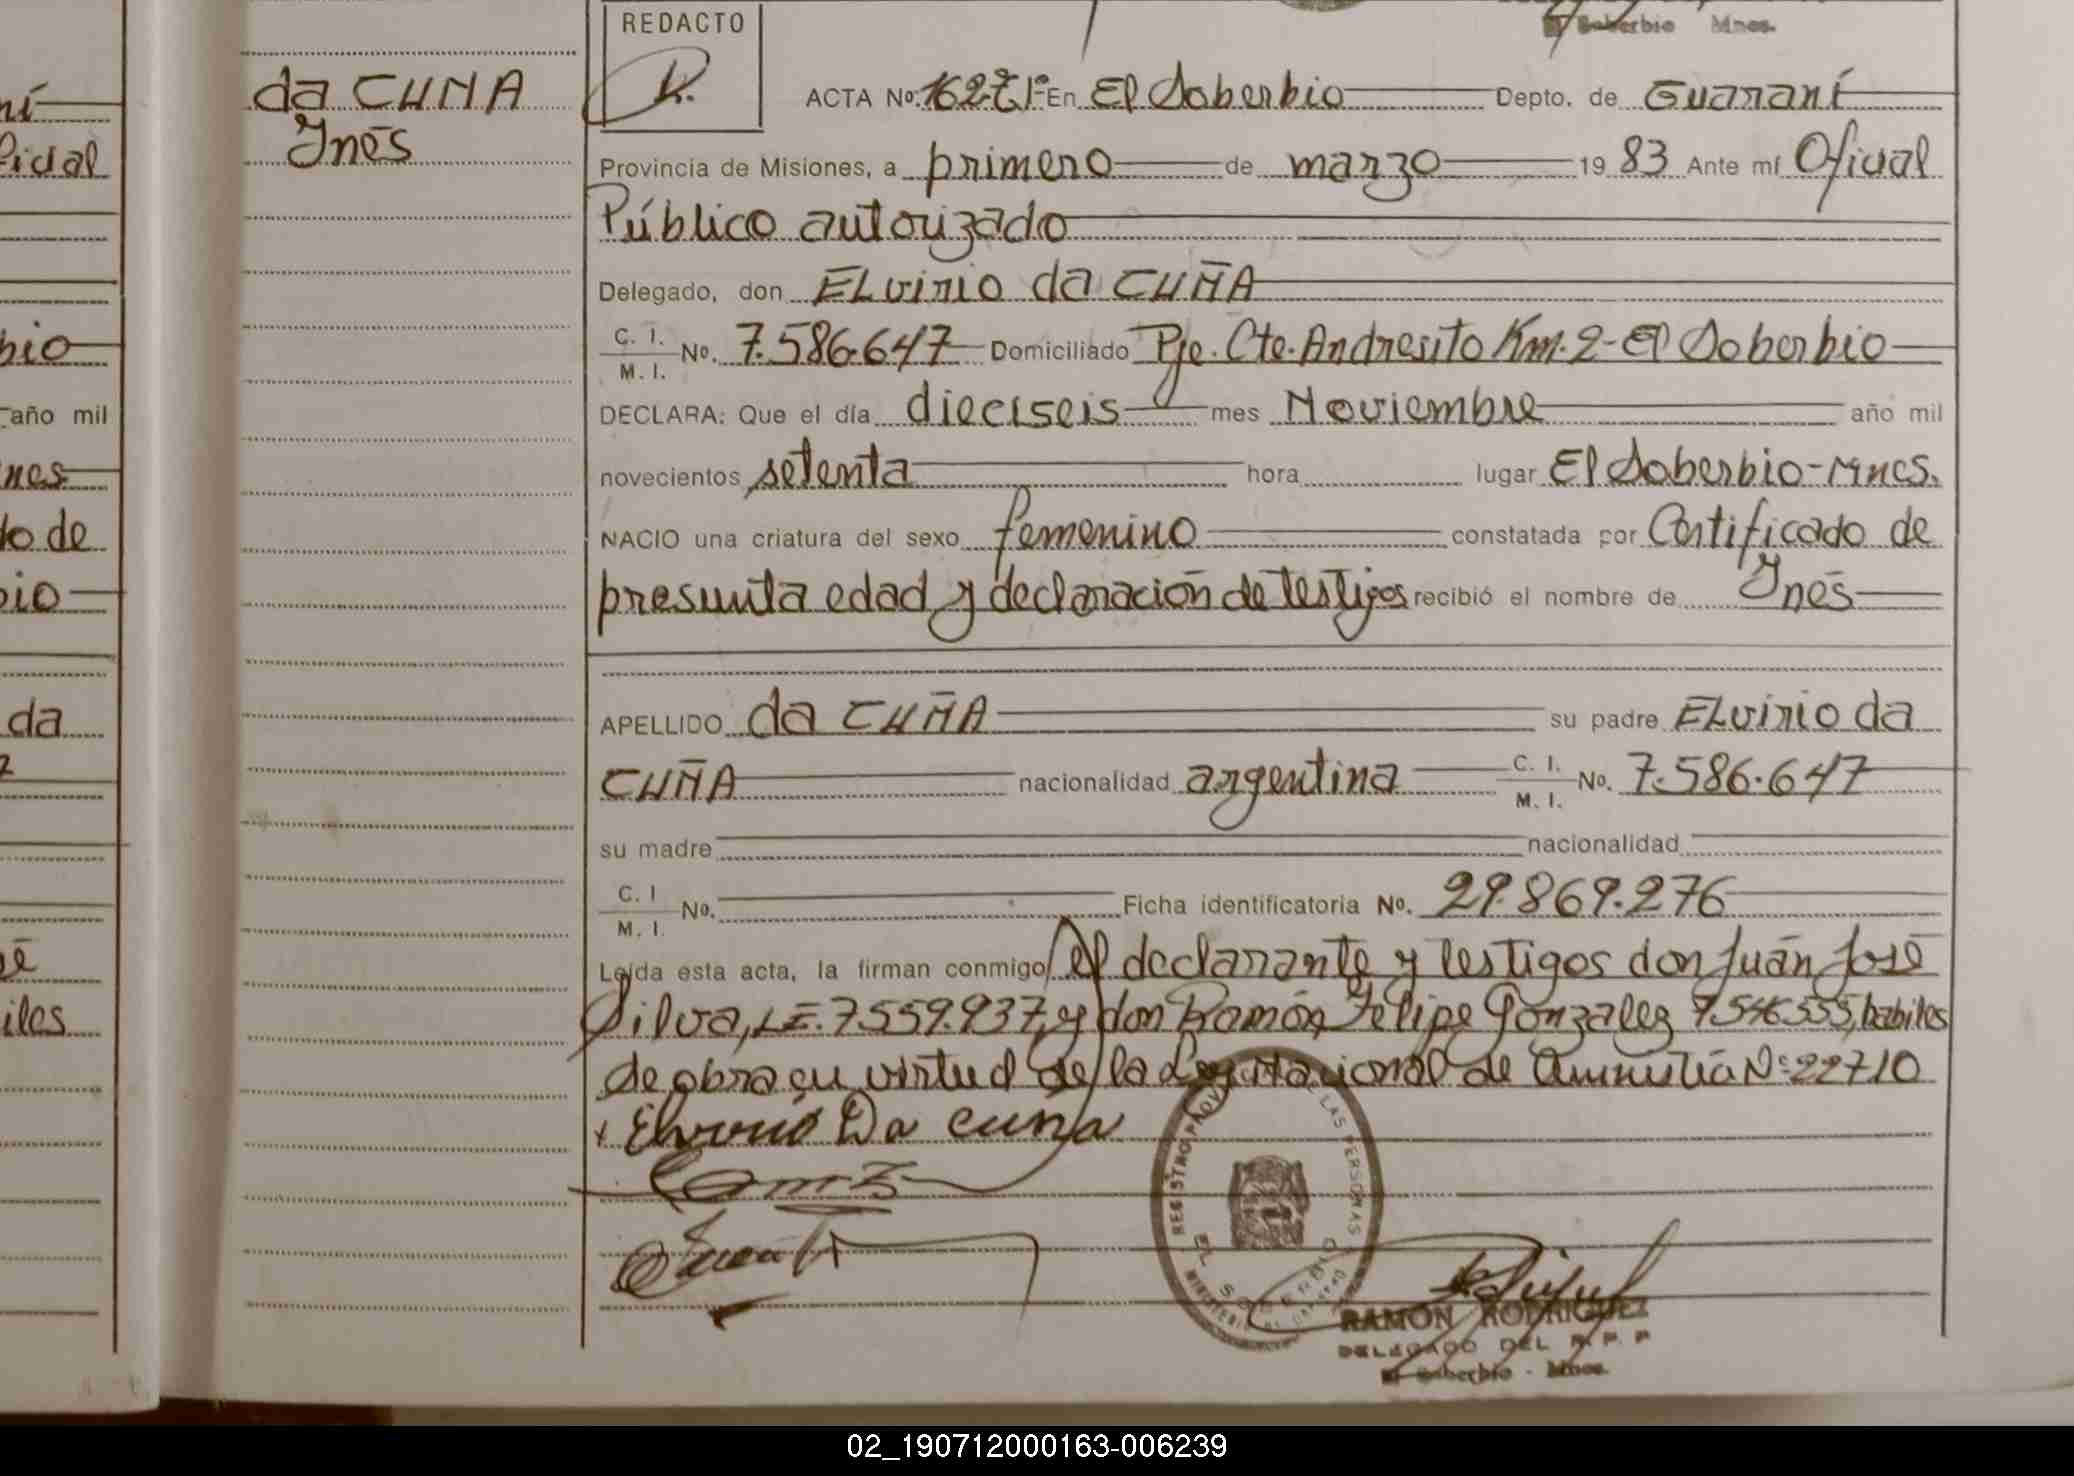 REDACTO
Soberbio Mnes.
ní
ficial
bio
año mil
nes
do de
bio
da
sé
iles
da CUÑA
Inés
ACTA Nº. 162 En El Soberbio Depto. de Guaraní
Provincia de Misiones, a primero de marzo 1983 Ante mí Oficial
Público autorizado
Delegado, don ELVIRIO da CUÑA
C. I.
M. I. Nº. 7.586.647 Domiciliado Pje. Cte. Andresito Km. 2 - El Soberbio
DECLARA: Que el día dieciseis mes Noviembre año mil
novecientos setenta hora lugar El Soberbio - Mnes.
NACIO una criatura del sexo femenino constatada por Certificado de
presunta edad y declaración de testigos recibió el nombre de Inés
APELLIDO da CUÑA su padre ELVIRIO da
CUÑA nacionalidad argentina C. I.
M. I. Nº. 7.586.647
su madre nacionalidad
C. I
M. I. Nº. Ficha identificatoria Nº. 29.869.276
Leída esta acta, la firman conmigo, el declarante y testigos don Juán José
Silva, L.E. 7.559.937, y don Ramón Felipe Gonzalez 7.546.555, habiles
de obra en virtud de la Ley Nacional de Amnistía Nº 22710
Elvirio Da cuña
REGISTRO PROV. DE LAS PERSONAS
EL SOBERBIO
RAMON RODRIGUEZ
DELEGADO DEL R. P. P
El Soberbio - Mnes.
02_190712000163-006239